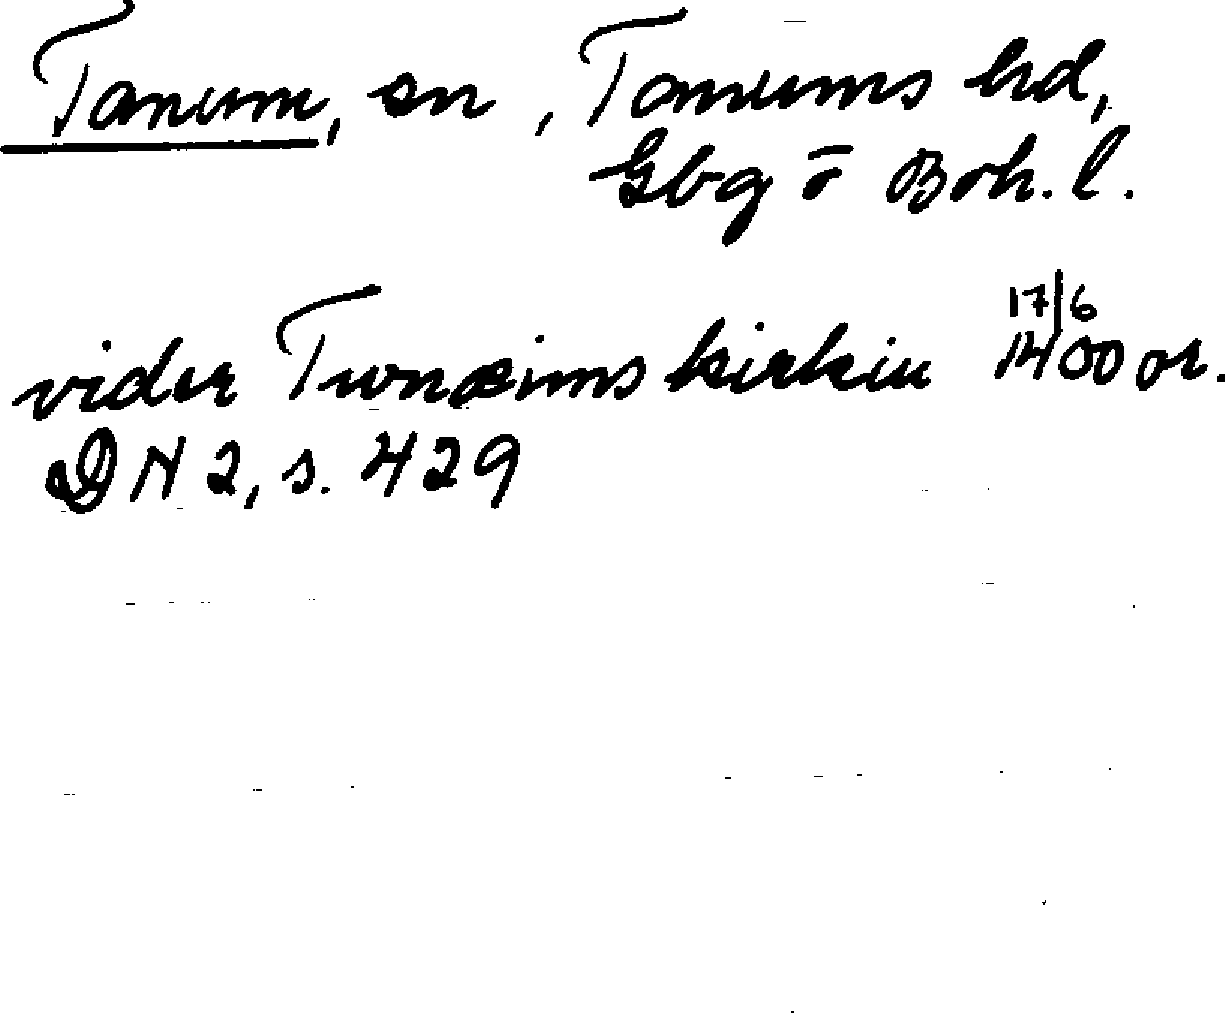 Tanum, sn, Tanums hd,
Gbg ö Boh. l.
17/6
vider Twnæims kirkiu 1400 or.
DN 2, s. 429